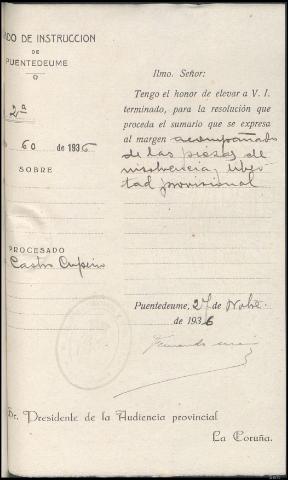 ADO DE INSTRUCCION
DE
PUENTEDEUME
2ª
60 de 1936
SOBRE
PROCESADO
Castro
Ilmo. Señor:
Tengo el honor de elevar a V. I.
terminado, para la resolución que
proceda el sumario que se expresa
al margen acompañado
de las piezas de
insolvencia y liber
tad provisional
Puentedeume, 27 de Nobre.
de 1936
Fernando
Sr. Presidente de la Audiencia provincial
La Coruña.